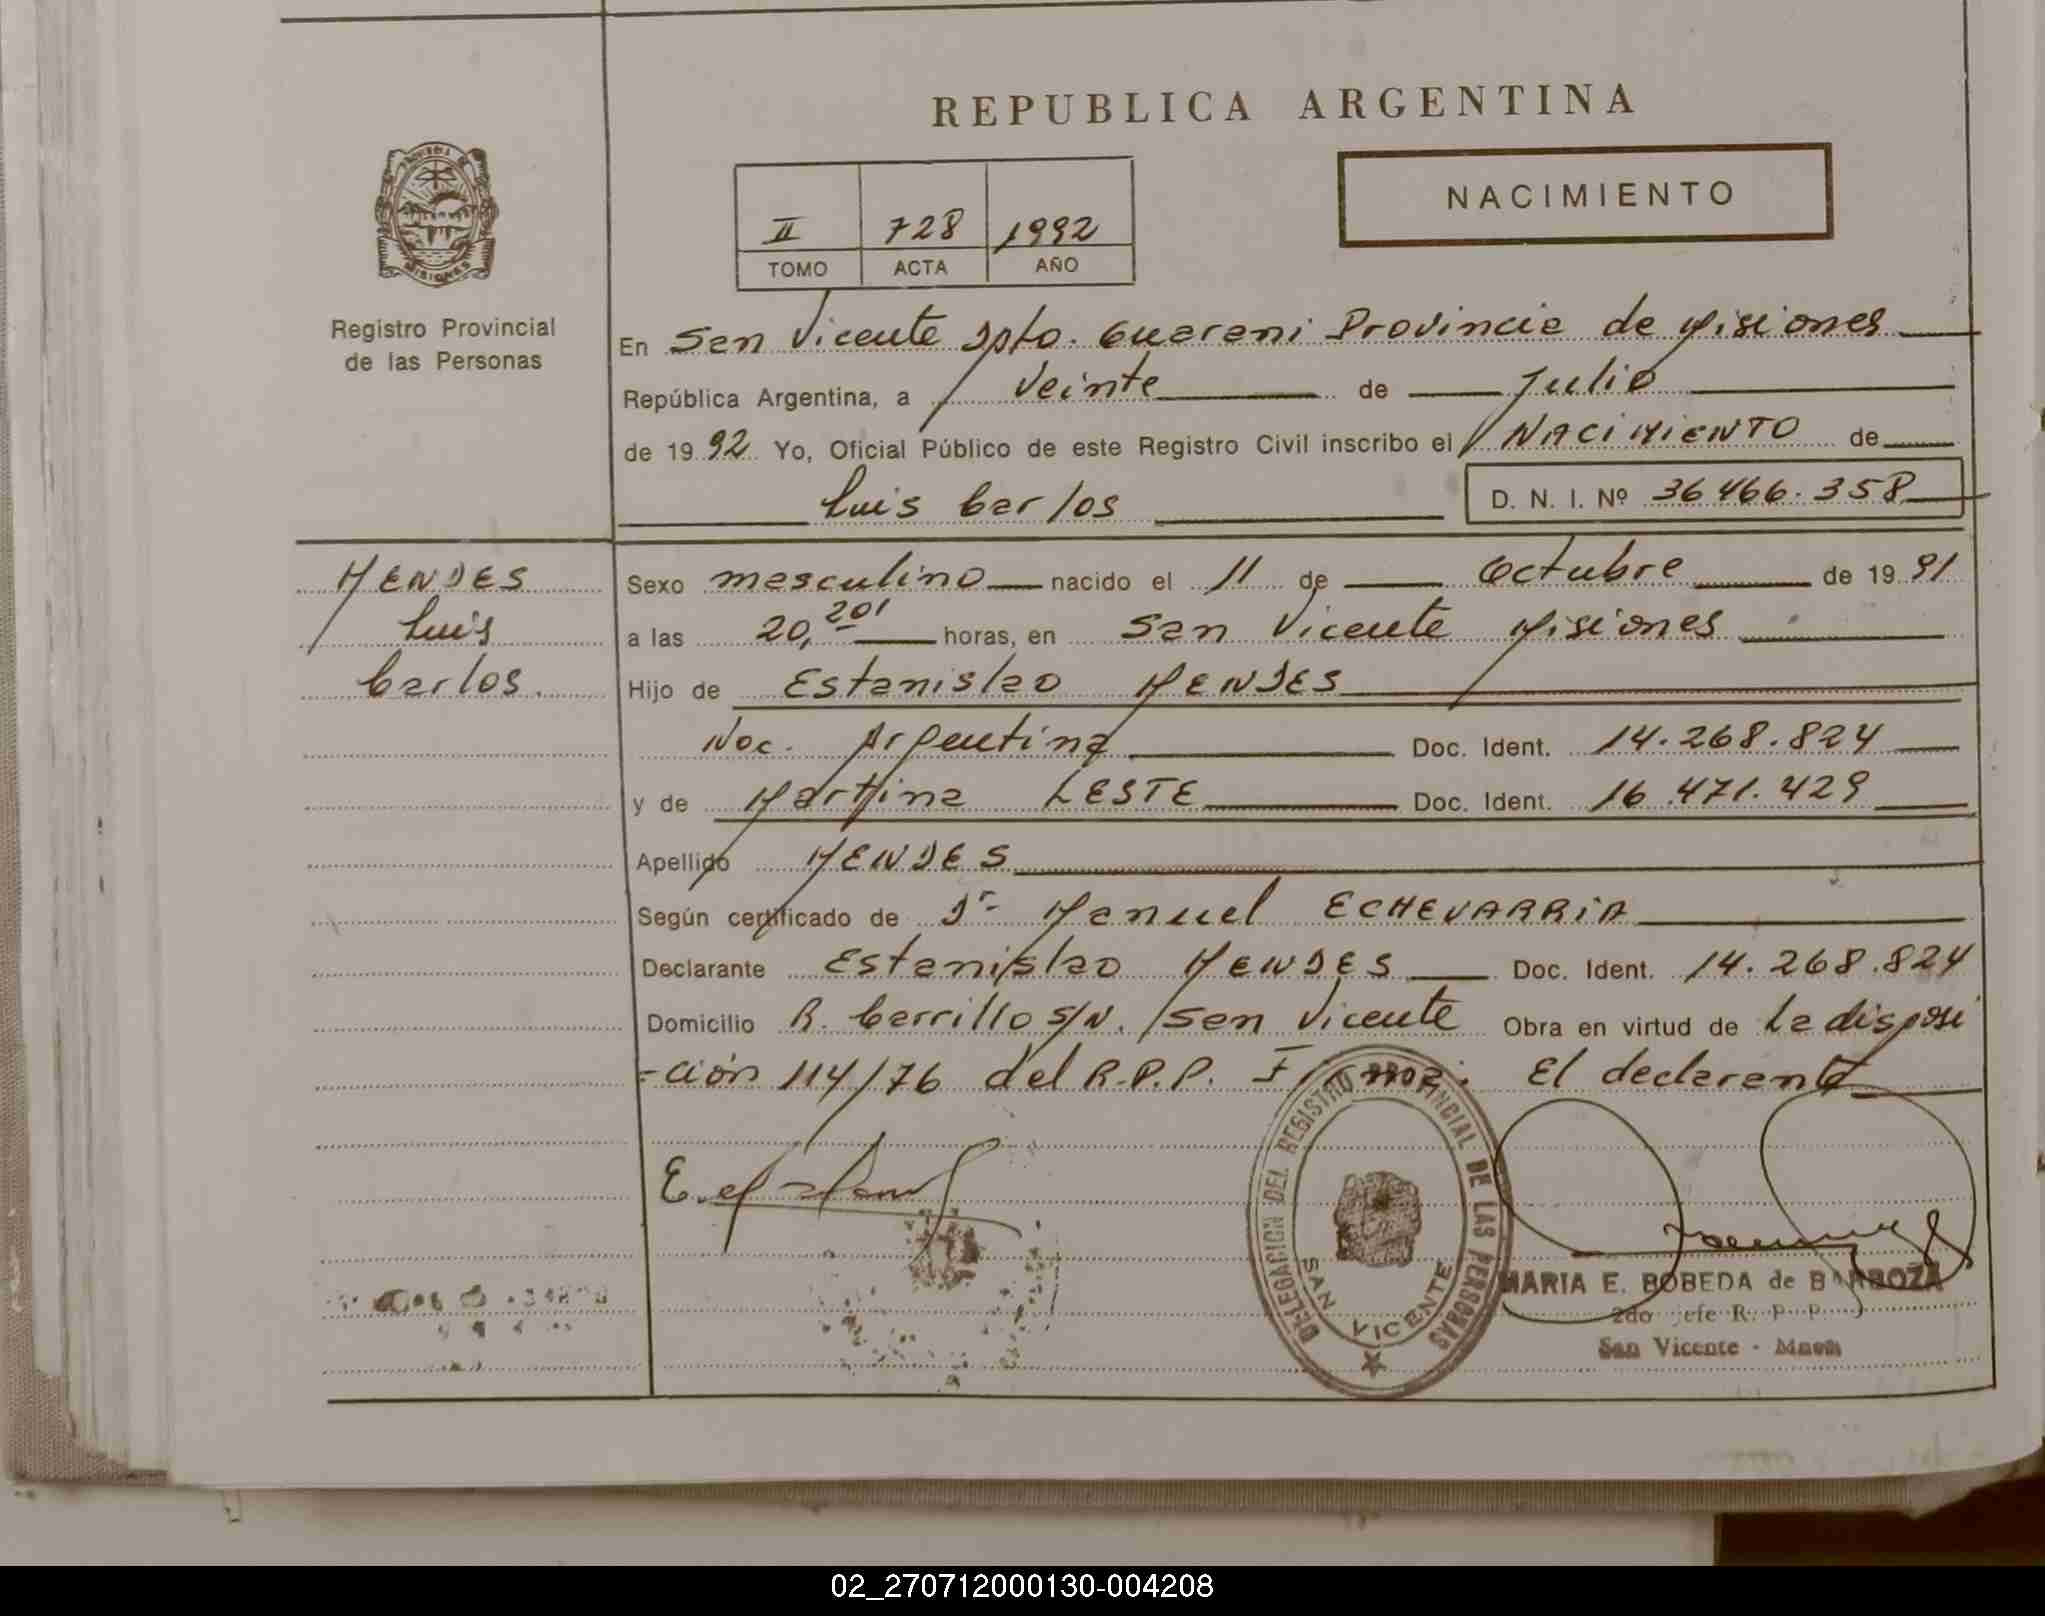 REPUBLICA ARGENTINA
NACIMIENTO
II 728 1992
TOMO ACTA AÑO
PROVINCIA DE
MISIONES
Registro Provincial
de las Personas
En San Vicente Dpto. Guarani Provincia de Misiones
República Argentina, a Veinte de Julio
de 1992 Yo, Oficial Público de este Registro Civil inscribo el NACIMIENTO de
Luis Carlos D. N. I. Nº 36466.358
MENDES
Luis
Carlos.
Sexo masculino nacido el 11 de Octubre de 1991
a las 20,20' horas, en San Vicente Misiones
Hijo de Estanislao MENDES
Nac. Argentina Doc. Ident. 14.268.824
y de Martina LESTE Doc. Ident. 16.471.429
Apellido MENDES
Según certificado de Dr Manuel ECHEVARRIA
Declarante Estanislao MENDES Doc. Ident. 14.268.824
Domicilio R. Carrillo S/N. San Vicente Obra en virtud de La disposi
-ción 114/76 del R.P.P. Firma: El declarante
DELEGACION DEL REGISTRO PROVINCIAL DE LAS PERSONAS
SAN VICENTE
MARIA E. BOBEDA de BARBOZA
2do Jefe R. P. P.
San Vicente - Mnes
02_270712000130-004208